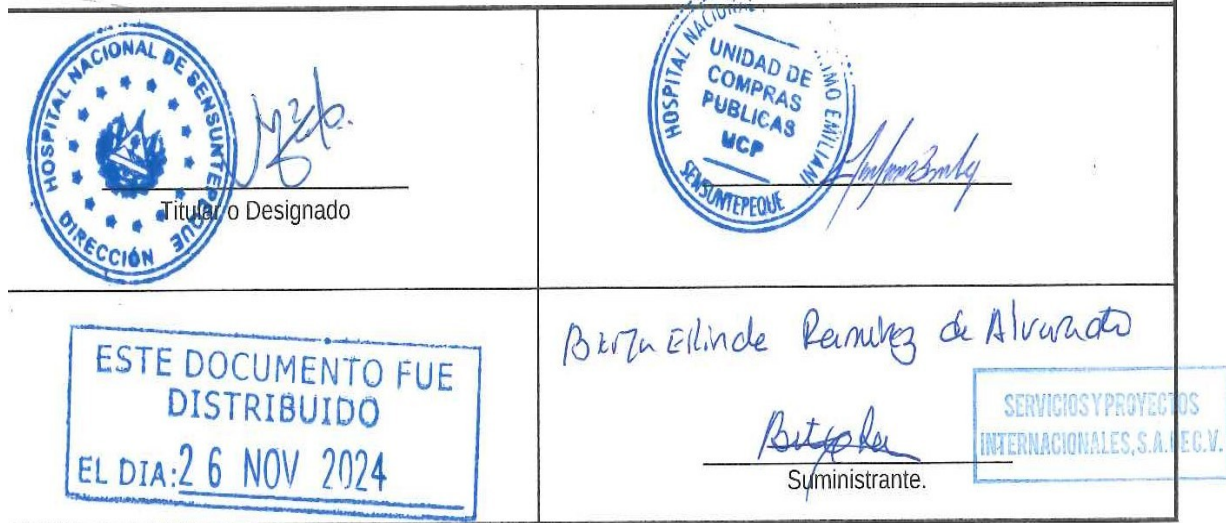 HOSPITAL NACIONAL DE SENSUNTEPEQUE
DIRECCIÓN
Titular o Designado
HOSPITAL NACIONAL
IMO EMILIANI
UNIDAD DE
COMPRAS
PUBLICAS
UCP
SENSUNTEPEQUE
ESTE DOCUMENTO FUE
DISTRIBUIDO
EL DIA: 26 NOV 2024
Ramirez de Alvarado
Suministrante.
SERVICIOS Y PROYECTOS
INTERNACIONALES, S.A. DE C.V.